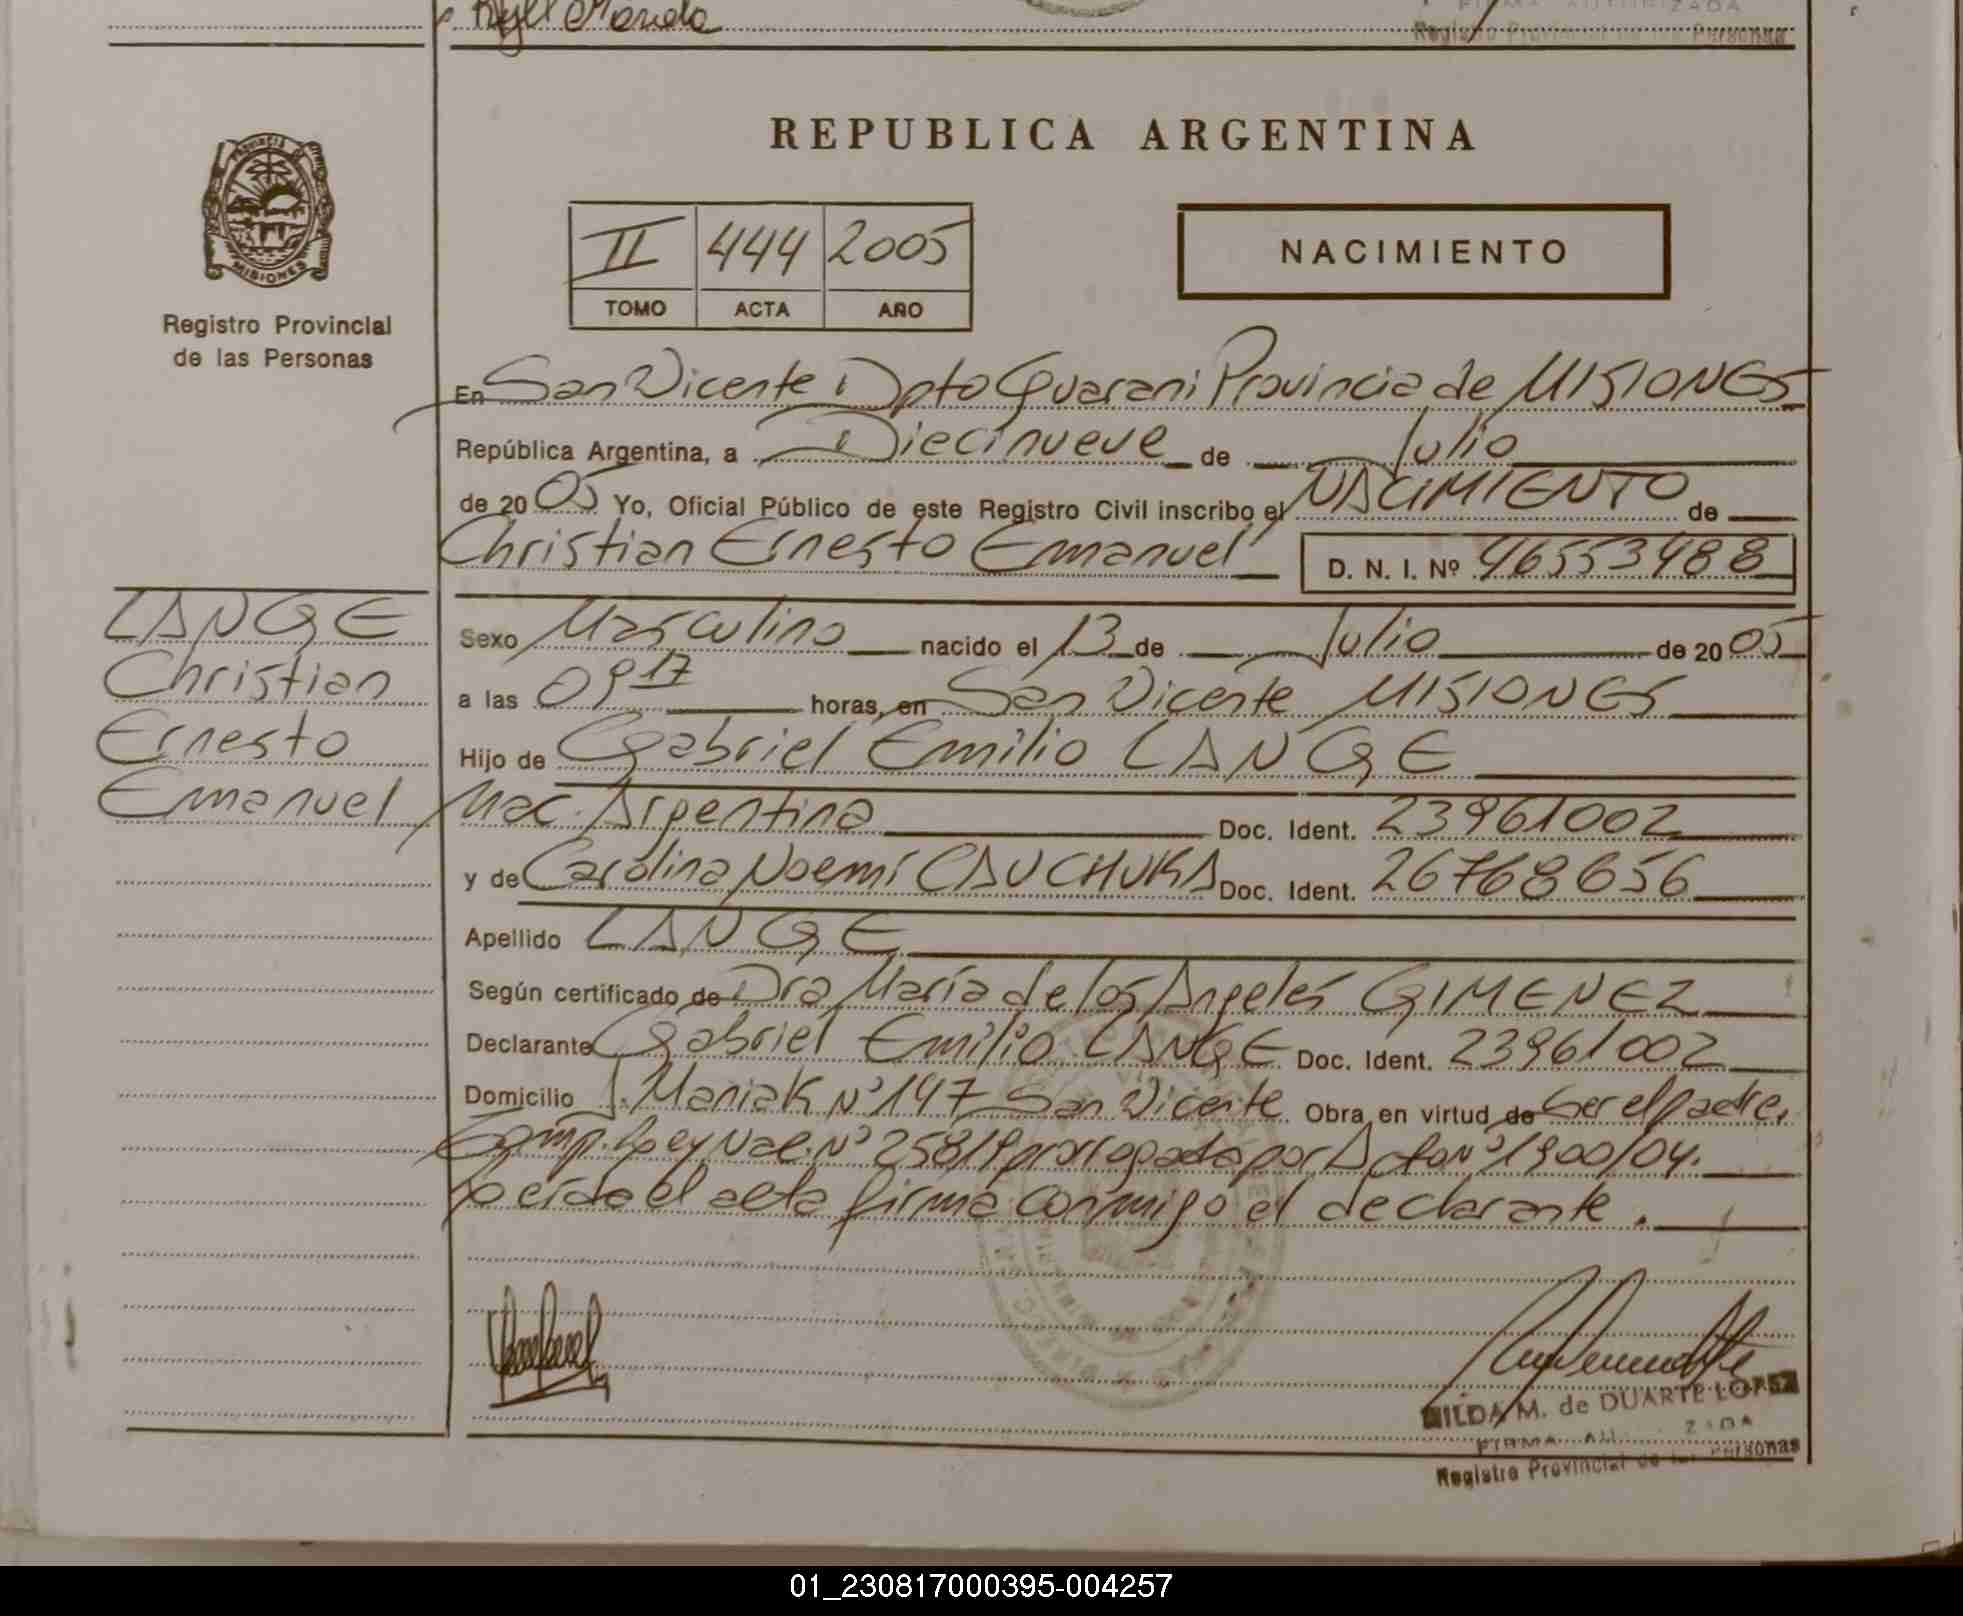 REPUBLICA ARGENTINA
PROVINCIA DE
MISIONES
Registro Provincial
de las Personas
II 444 2005
TOMO ACTA AÑO
NACIMIENTO
En San Vicente Dpto Guarani Provincia de MISIONES
República Argentina, a Diecinueve de Julio
de 2005 Yo, Oficial Público de este Registro Civil inscribo el NACIMIENTO de
Christian Ernesto Emanuel D. N. I. Nº 46553488
LANGE
Christian
Ernesto
Emanuel
Sexo Masculino nacido el 13 de Julio de 2005
a las 09 17 horas, en San Vicente MISIONES
Hijo de Gabriel Emilio LANGE
Nac. Argentina Doc. Ident. 23961002
y de Carolina Noemí CAUCHUKA Doc. Ident. 26768656
Apellido LANGE
Según certificado de Dra María de los Angeles GIMENEZ
Declarante Gabriel Emilio LANGE Doc. Ident. 23961002
Domicilio J. Maniak Nº 147 San Vicente Obra en virtud de Ser el padre.
Comp. Ley Nac. Nº 25819 prorrogada por Nº 1900/04.
Leída el acta firma conmigo el declarante.
HILDA M. de DUARTE LOPEZ
FIRMA
Registro Provincial de las Personas
01_230817000395-004257